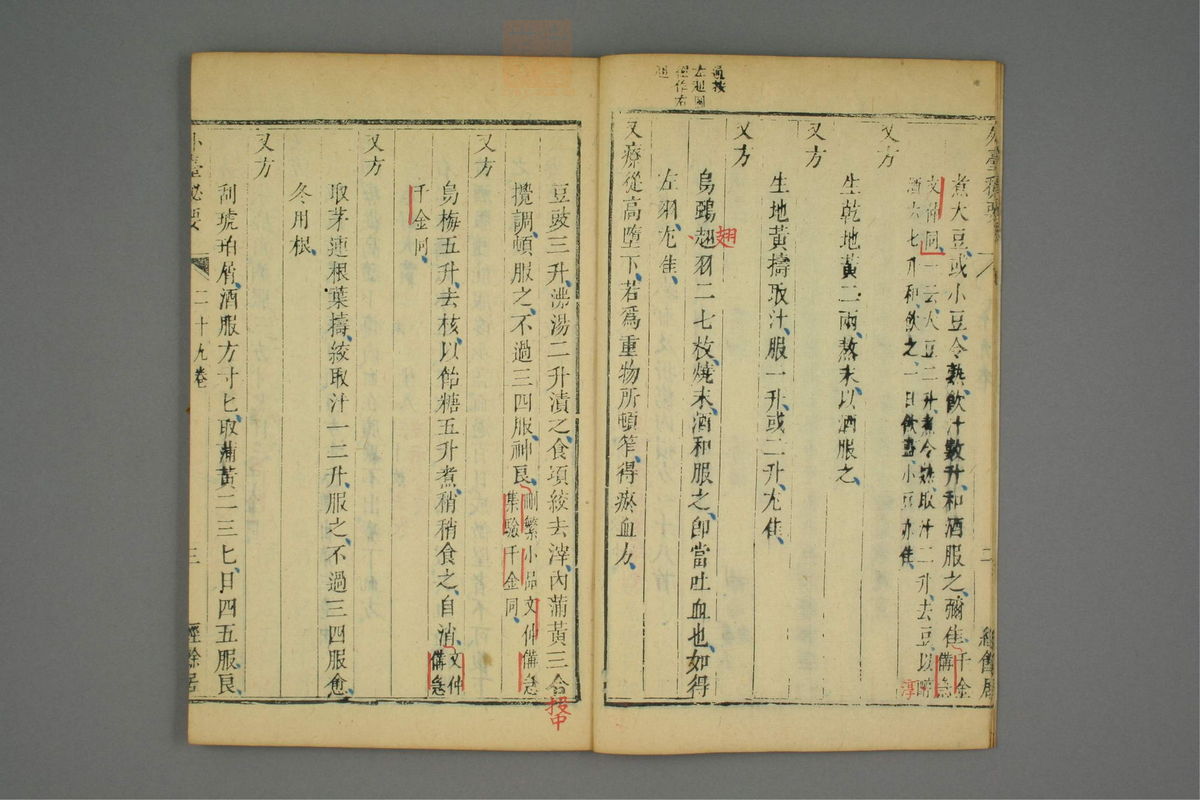 煮大豆或小豆令熟飲汁數升和酒服之彌佳千金備急
文仲同一云大豆二升煮令熟取汁二升去豆以
酒六七升和飲之一日飲盡小豆亦佳
又方
生乾地黃二兩熬末以酒服之
又方
生地黃擣取汁服一升或二升尤佳
又方
烏鵶翅羽二七枚燒末酒和服之即當吐血也如得
左羽尤佳
又療從高墮下若爲重物所頓笮得瘀血方
二
翅
淳
豆豉三升沸湯二升漬之食頃絞去滓內蒲黃三合
攪調頓服之不過三四服神良刪繁小品文仲備急集驗千金同
又方
烏梅五升去核以飴糖五升煮稍稍食之自消文仲備急
千金同
又方
取茅連根葉擣絞取汁一二升服之不過三四服愈
冬用根
又方
刮琥珀屑酒服方寸匕取蒲黃二三匕日四五服良
外臺秘要
二十九卷
三
經餘居